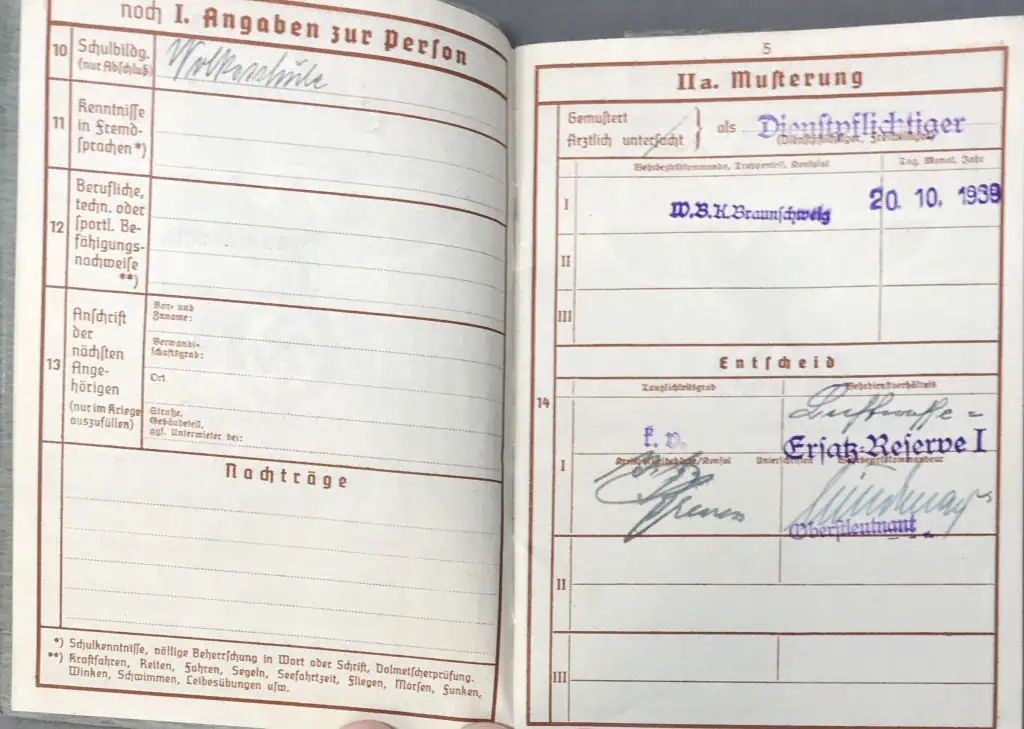 noch I. Angaben zur Person
10 Schulbildg. (nur Abschluß)
Volksschule
11 Kenntnisse in Fremd-
sprachen *)
12 Berufliche,
techn. oder
sportl. Be-
fähigungs-
nachweise
**)
13 Anschrift
der
nächsten
Ange-
hörigen
(nur im Kriege
auszufüllen)
Vor- und
Zuname:
Verwandt-
schaftsgrad:
Ort
Straße,
Gebäudeteil,
ggf. Untermieter bei:
Nachträge
*) Schulkenntnisse, völlige Beherrschung in Wort oder Schrift, Dolmetscherprüfung.
**) Kraftfahren, Reiten, Fahren, Segeln, Seefahrtzeit, Fliegen, Morsen, Funken,
Winken, Schwimmen, Leibesübungen usw.
5
IIa. Musterung
Gemustert
Ärztlich untersucht
als Dienstpflichtiger
Wehrbezirkskommando, Truppenteil, Konsulat
Tag, Monat, Jahr
I W.B.K. Braunschweig 20. 10. 1939
II
III
Entscheid
14
Tauglichkeitsgrad
Wehrdienstverhältnis
Luftwaffe -
k. v.
Ersatz-Reserve I
I
Unterschriften
Oberstleutnant
II
III